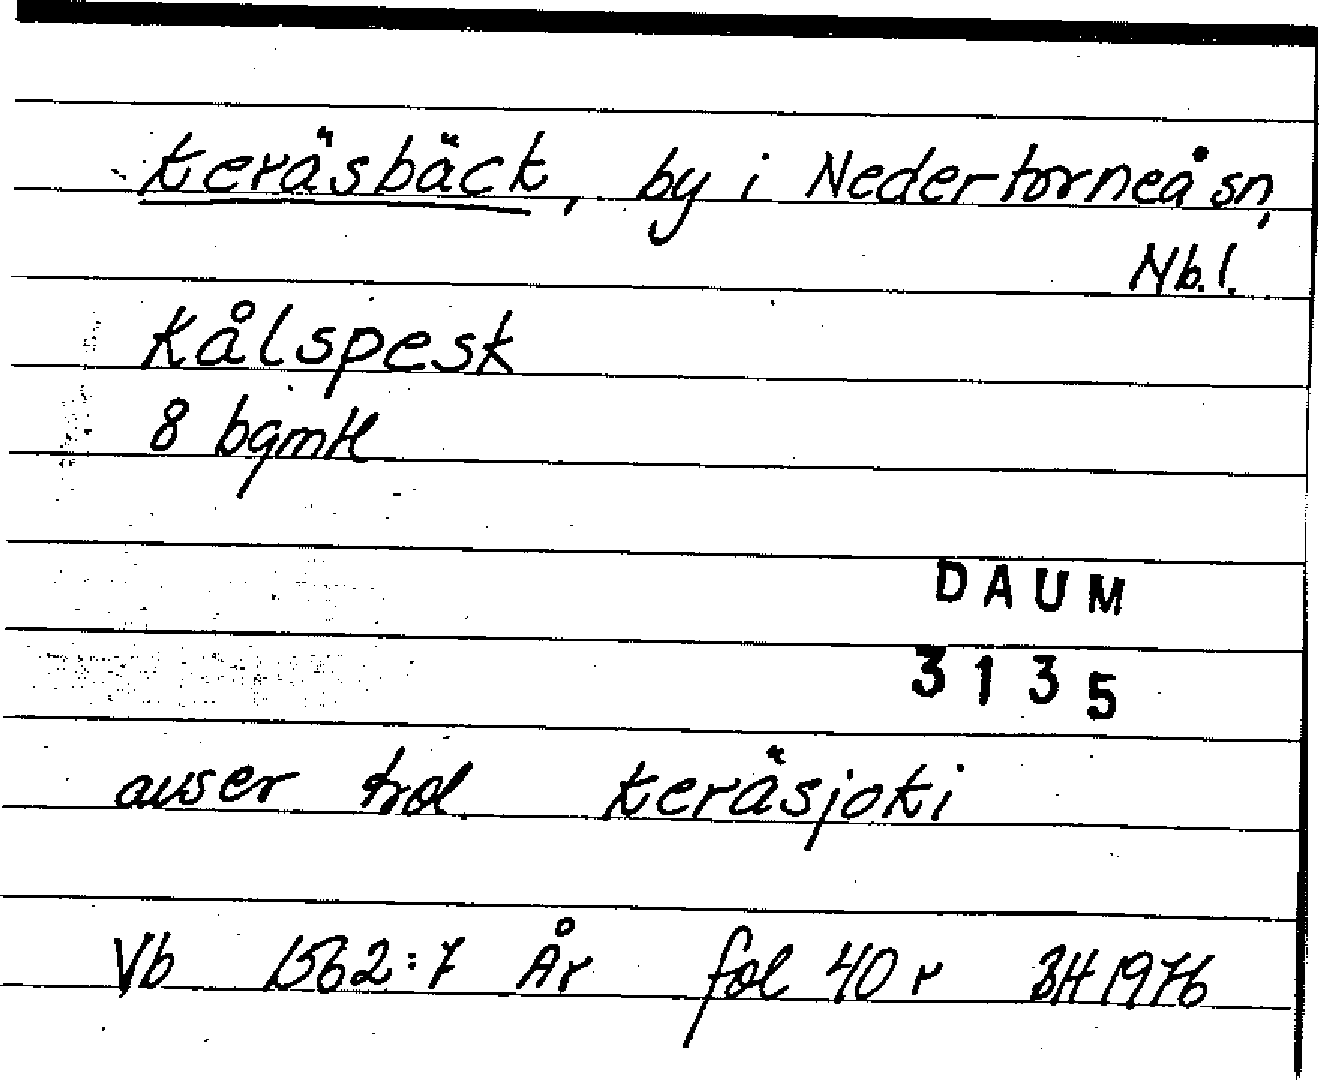 Keräsbäck, by i Nedertorneå sn,
Nb.l.
Kålspesk
8 bgmtl
DAUM
3135
avser trol Keräsjoki
Vb 1562:7 År fol 40 r BH 1976